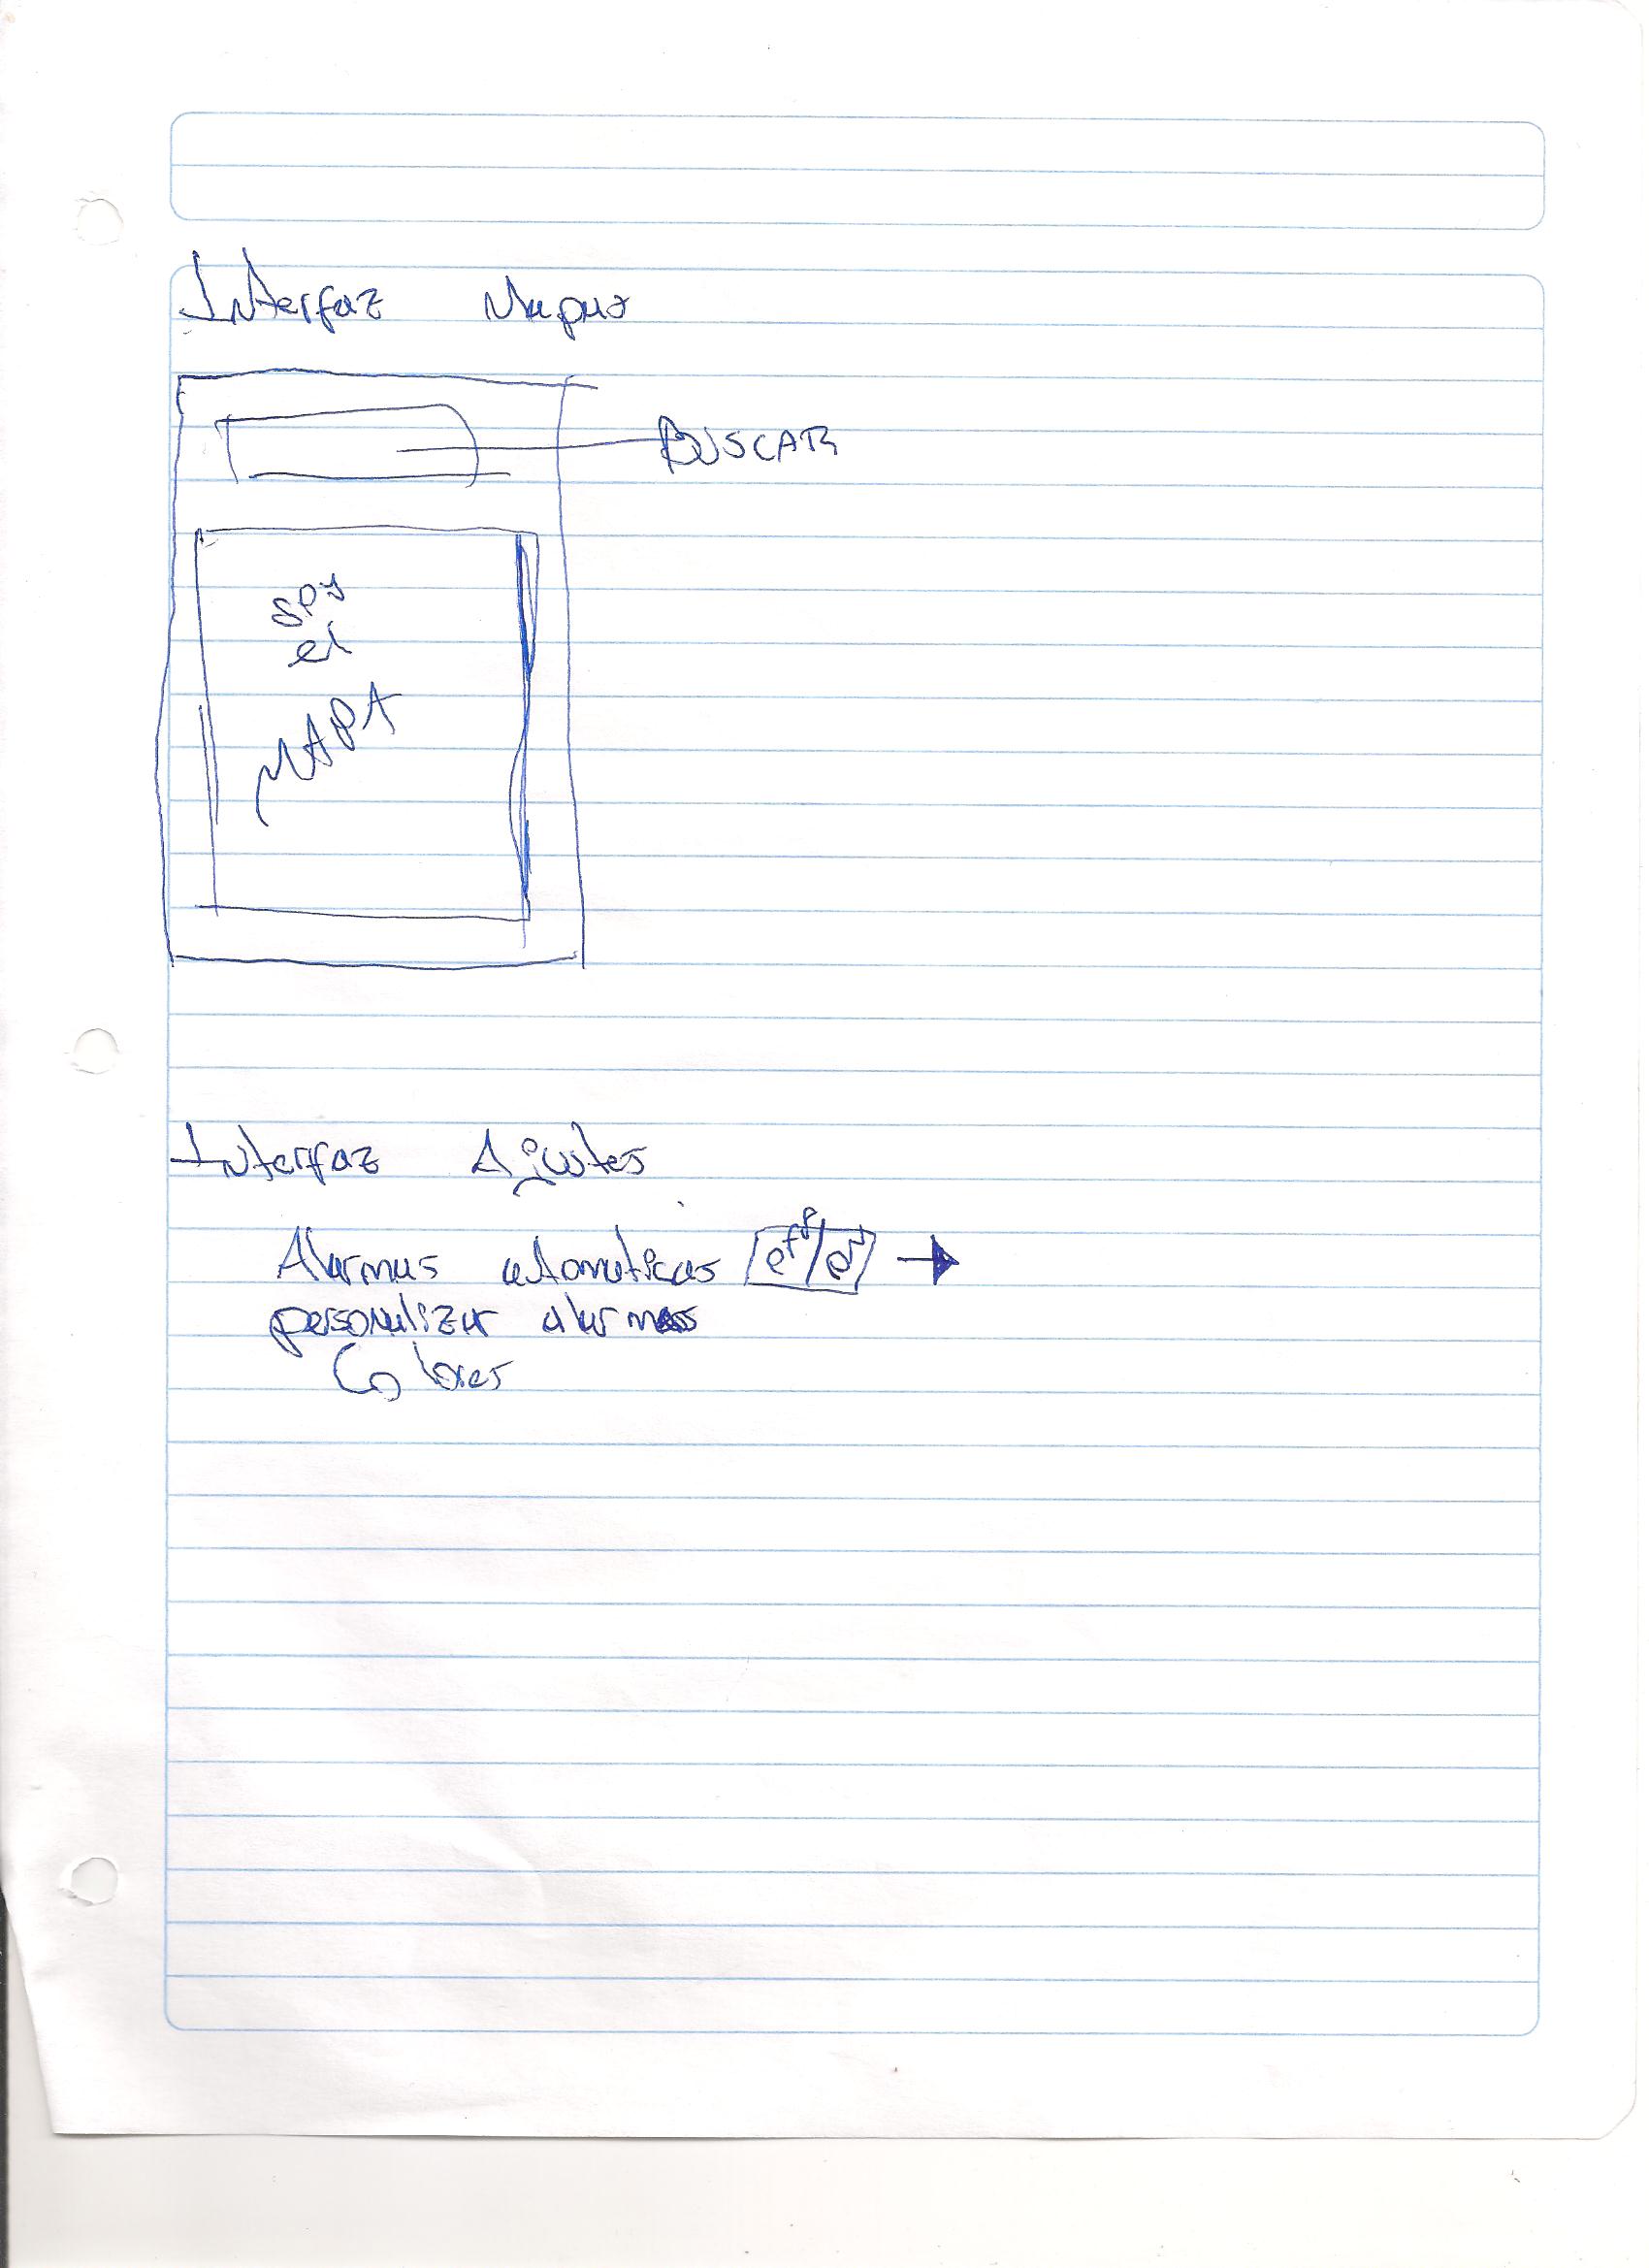 Interfaz Mapas
BUSCAR
soy
el
MAPA
Interfaz Ajustes
Alarmas automaticas off/on →
personalizar alarmas
Colores